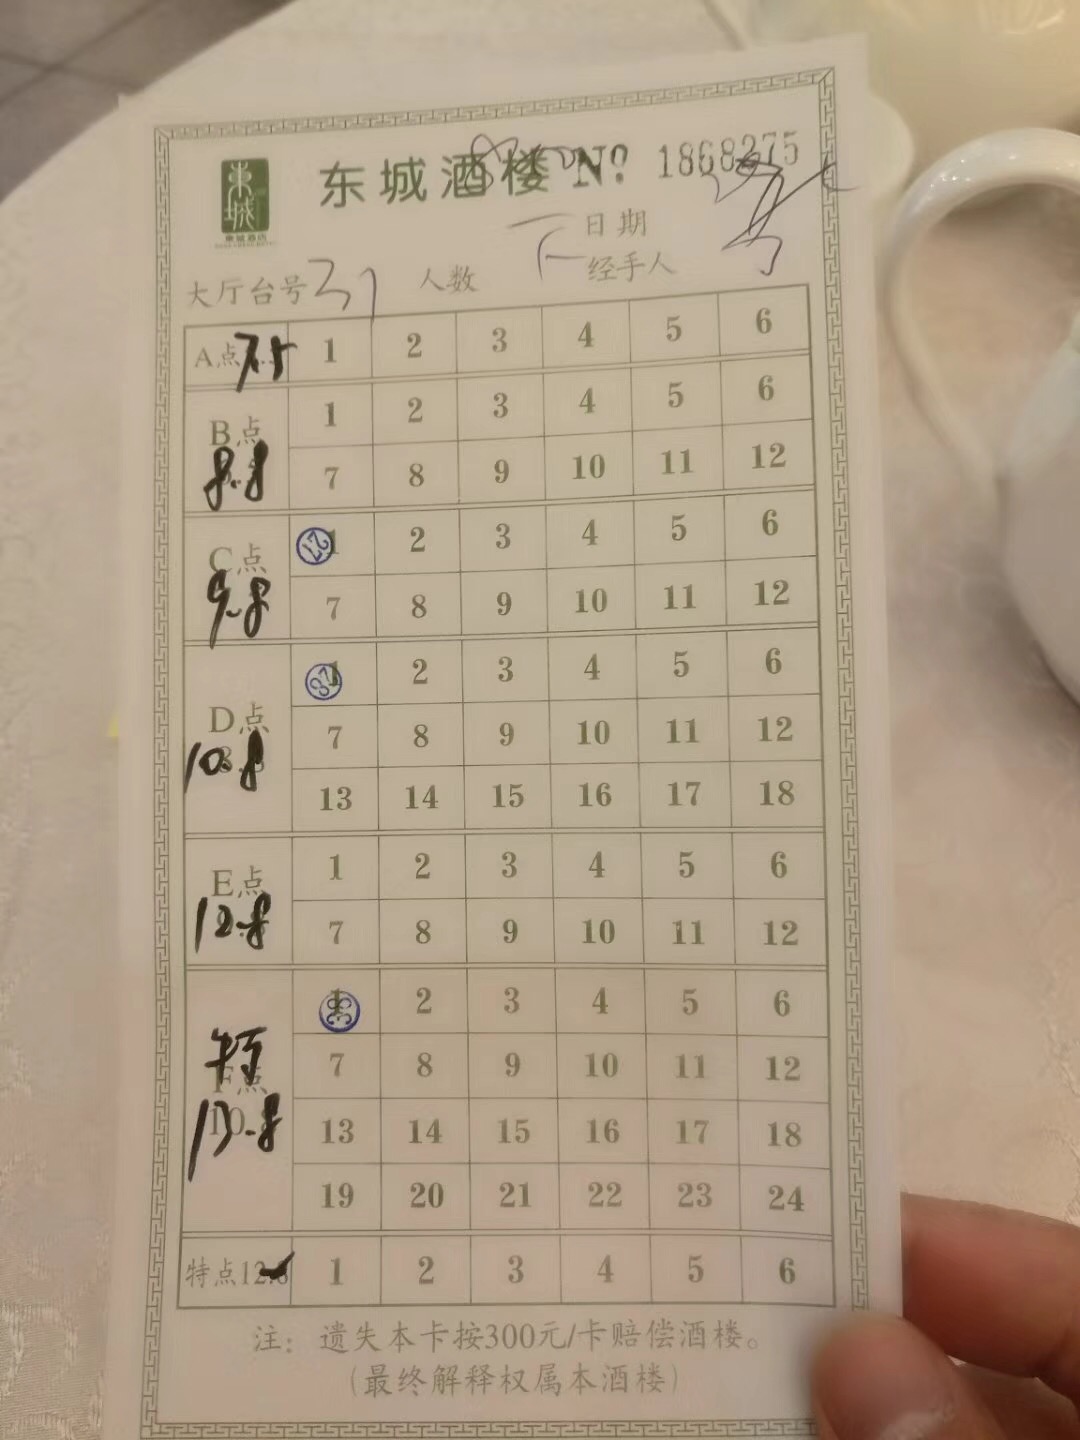 東城
东城酒楼 Nº 1868275
日期
大厅台号 31 人数 经手人
A点 7.5 1 2 3 4 5 6
B点 1 2 3 4 5 6
8.8 7 8 9 10 11 12
C点 1 2 3 4 5 6
9.8 7 8 9 10 11 12
1 2 3 4 5 6
D点 7 8 9 10 11 12
10.8 13 14 15 16 17 18
E点 1 2 3 4 5 6
12.8 7 8 9 10 11 12
1 2 3 4 5 6
F点 7 8 9 10 11 12
13.8 13 14 15 16 17 18
19 20 21 22 23 24
特点12.8 1 2 3 4 5 6
注：遗失本卡按300元/卡赔偿酒楼。
（最终解释权属本酒楼）